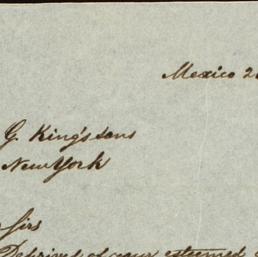 Mexico 2
G. King's sons
New York
sirs
Deprived of your esteemed